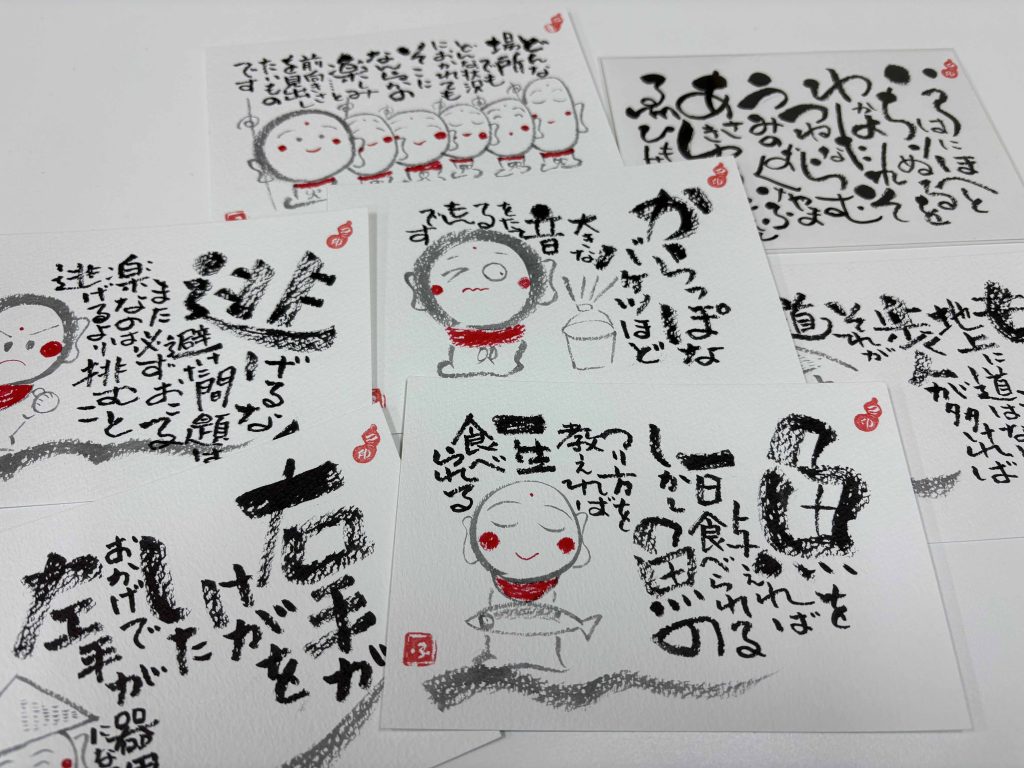 どんな
場所でも
どんな状況
におかれても
そこに
なんらかの
楽しみと
前向きさ
を見出し
たいもの
です
いろはにほへと
ちりぬるを
わかよたれそ
つねならむ
けふ
あさき
ゑひも
からっぽな
バケツほど
大きな
音
をたて
る
です
逃げるな
避けた問題は
また必ずおこる
楽なのは
逃げるより挑むこと
も
地上に道はな
人が
歩
それが
道
右手が
けがを
した
おかげで
左手が
器用
にな
魚を
与えれば
一日食べられる
しかし
魚の
つり方を
教えれば
一生
食べ
られる